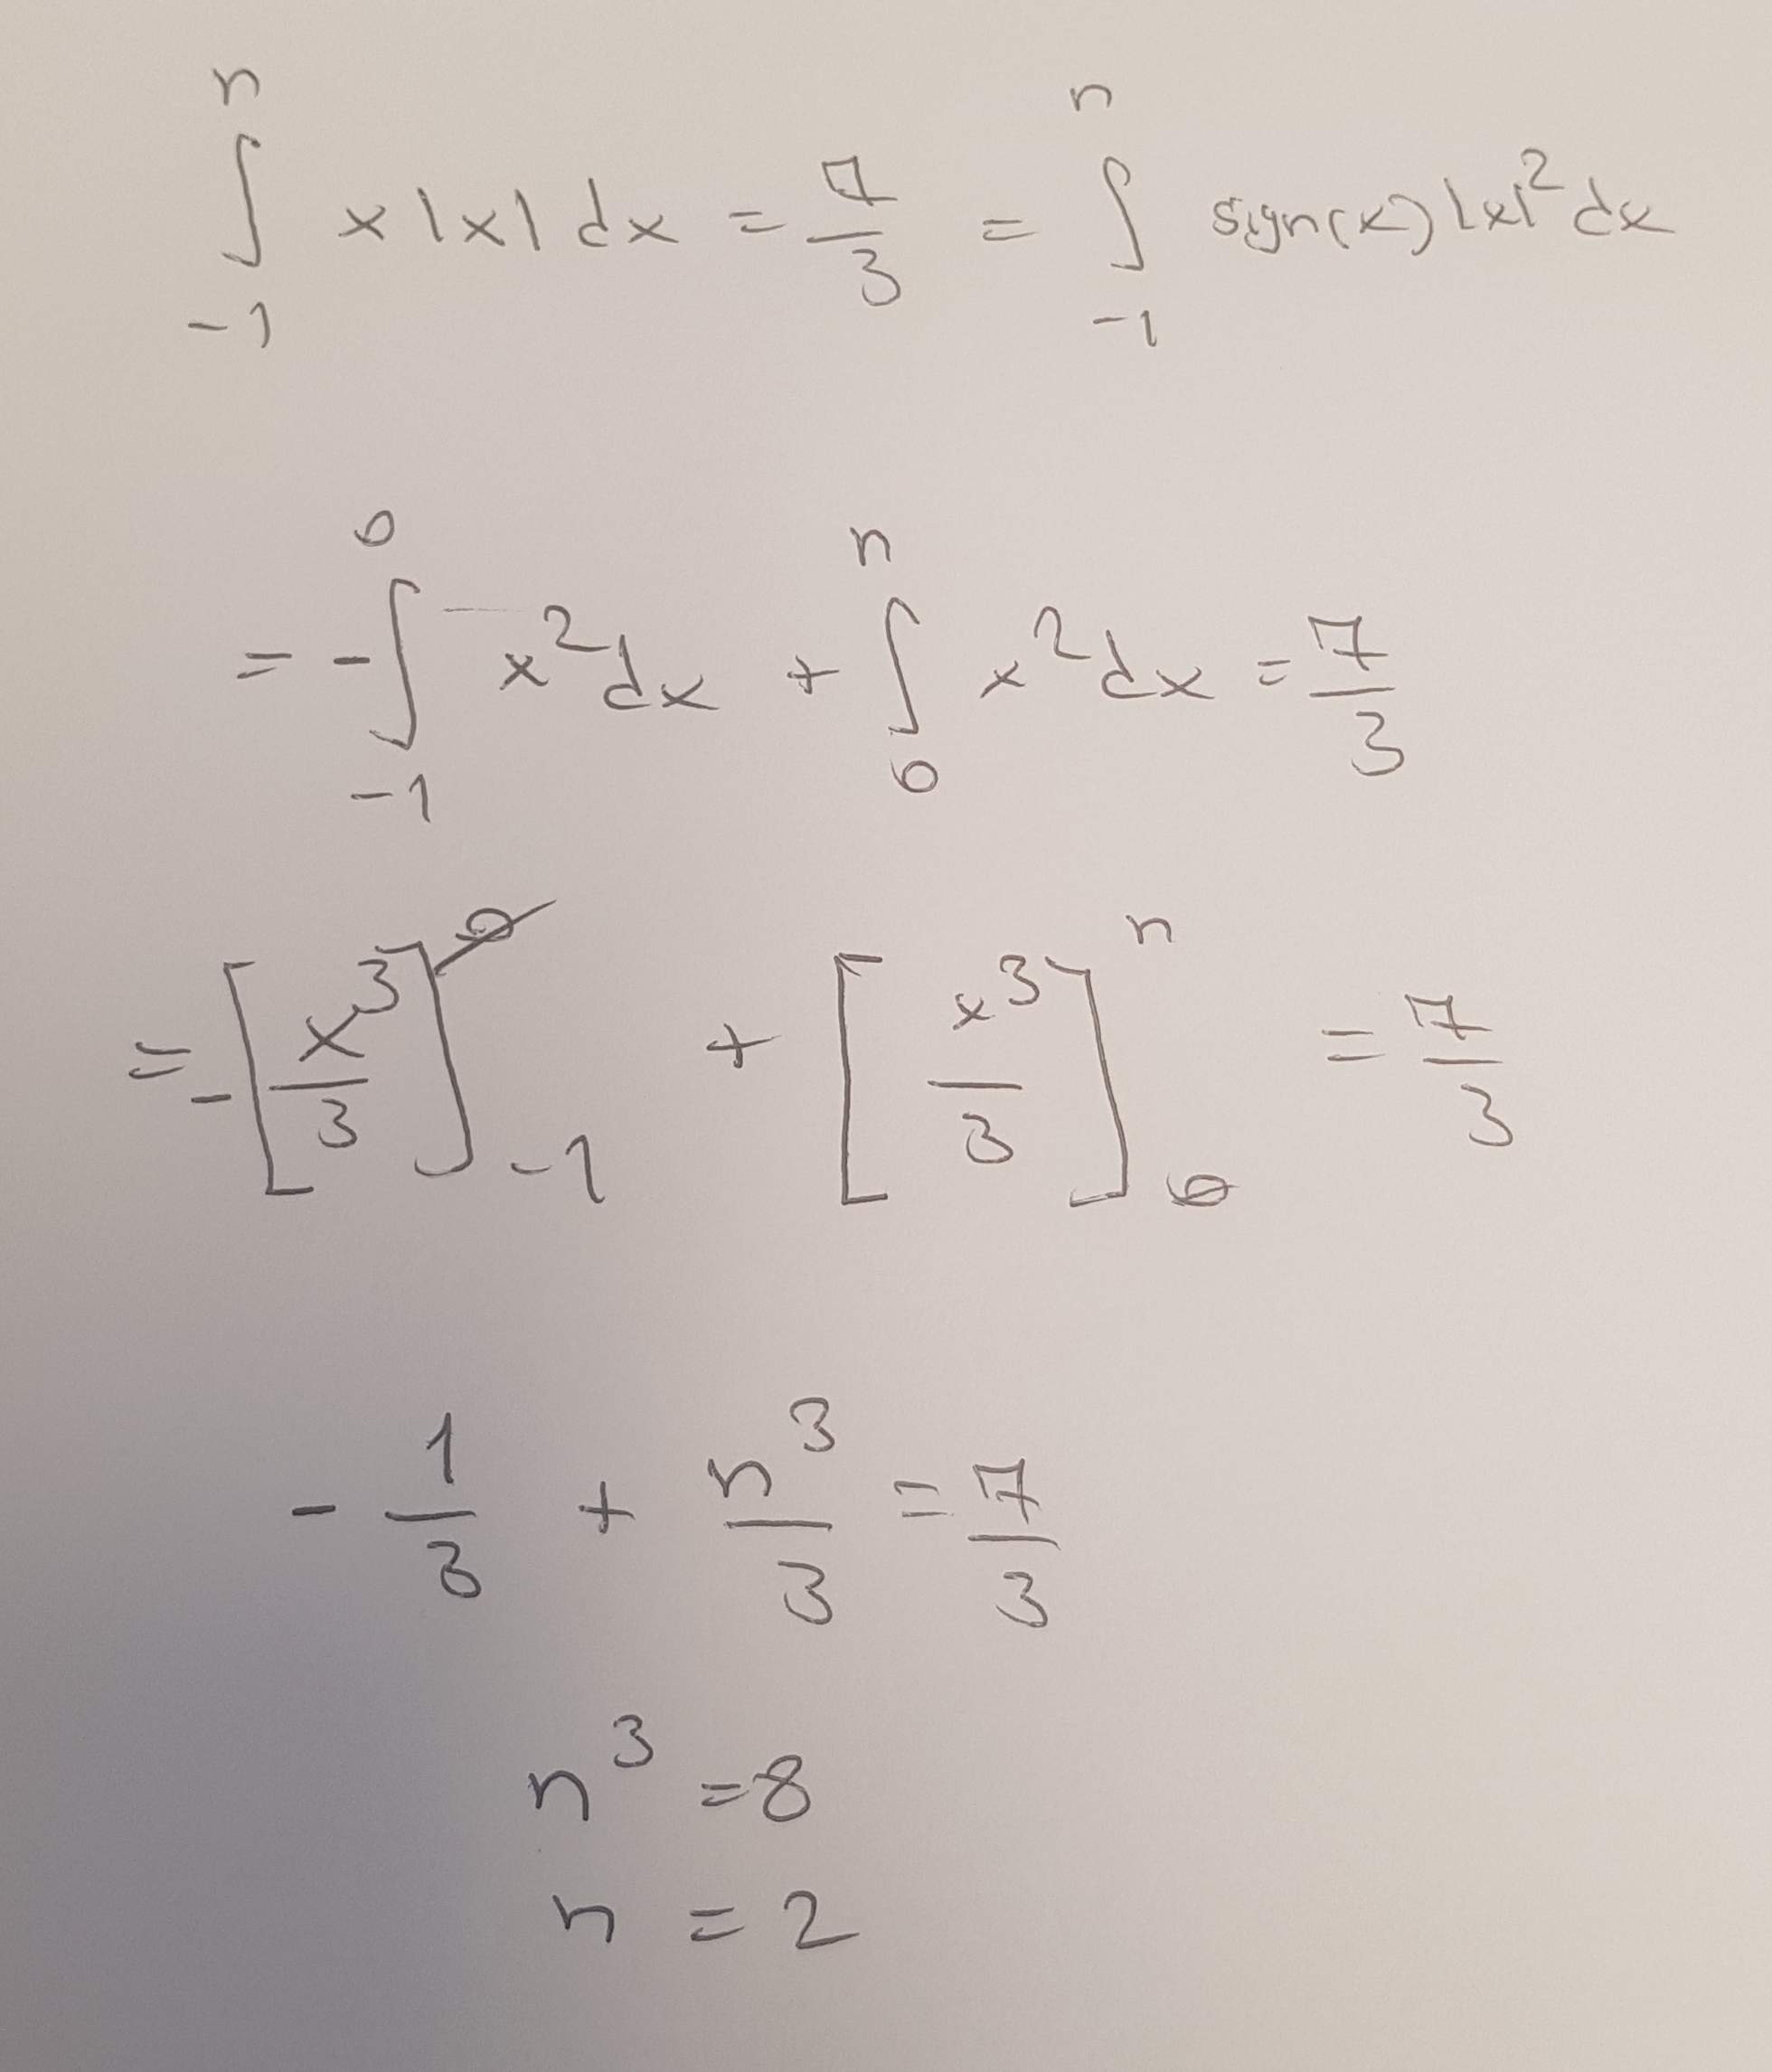 ∫_{-1}^{n} x|x| dx = 7/3 = ∫_{-1}^{n} sign(x) |x|² dx
= -∫_{-1}^{0} x² dx + ∫_{0}^{n} x² dx = 7/3
= -[x³/3]_{-1}^{0} + [x³/3]_{0}^{n} = 7/3
- 1/3 + n³/3 = 7/3
n³ = 8
n = 2